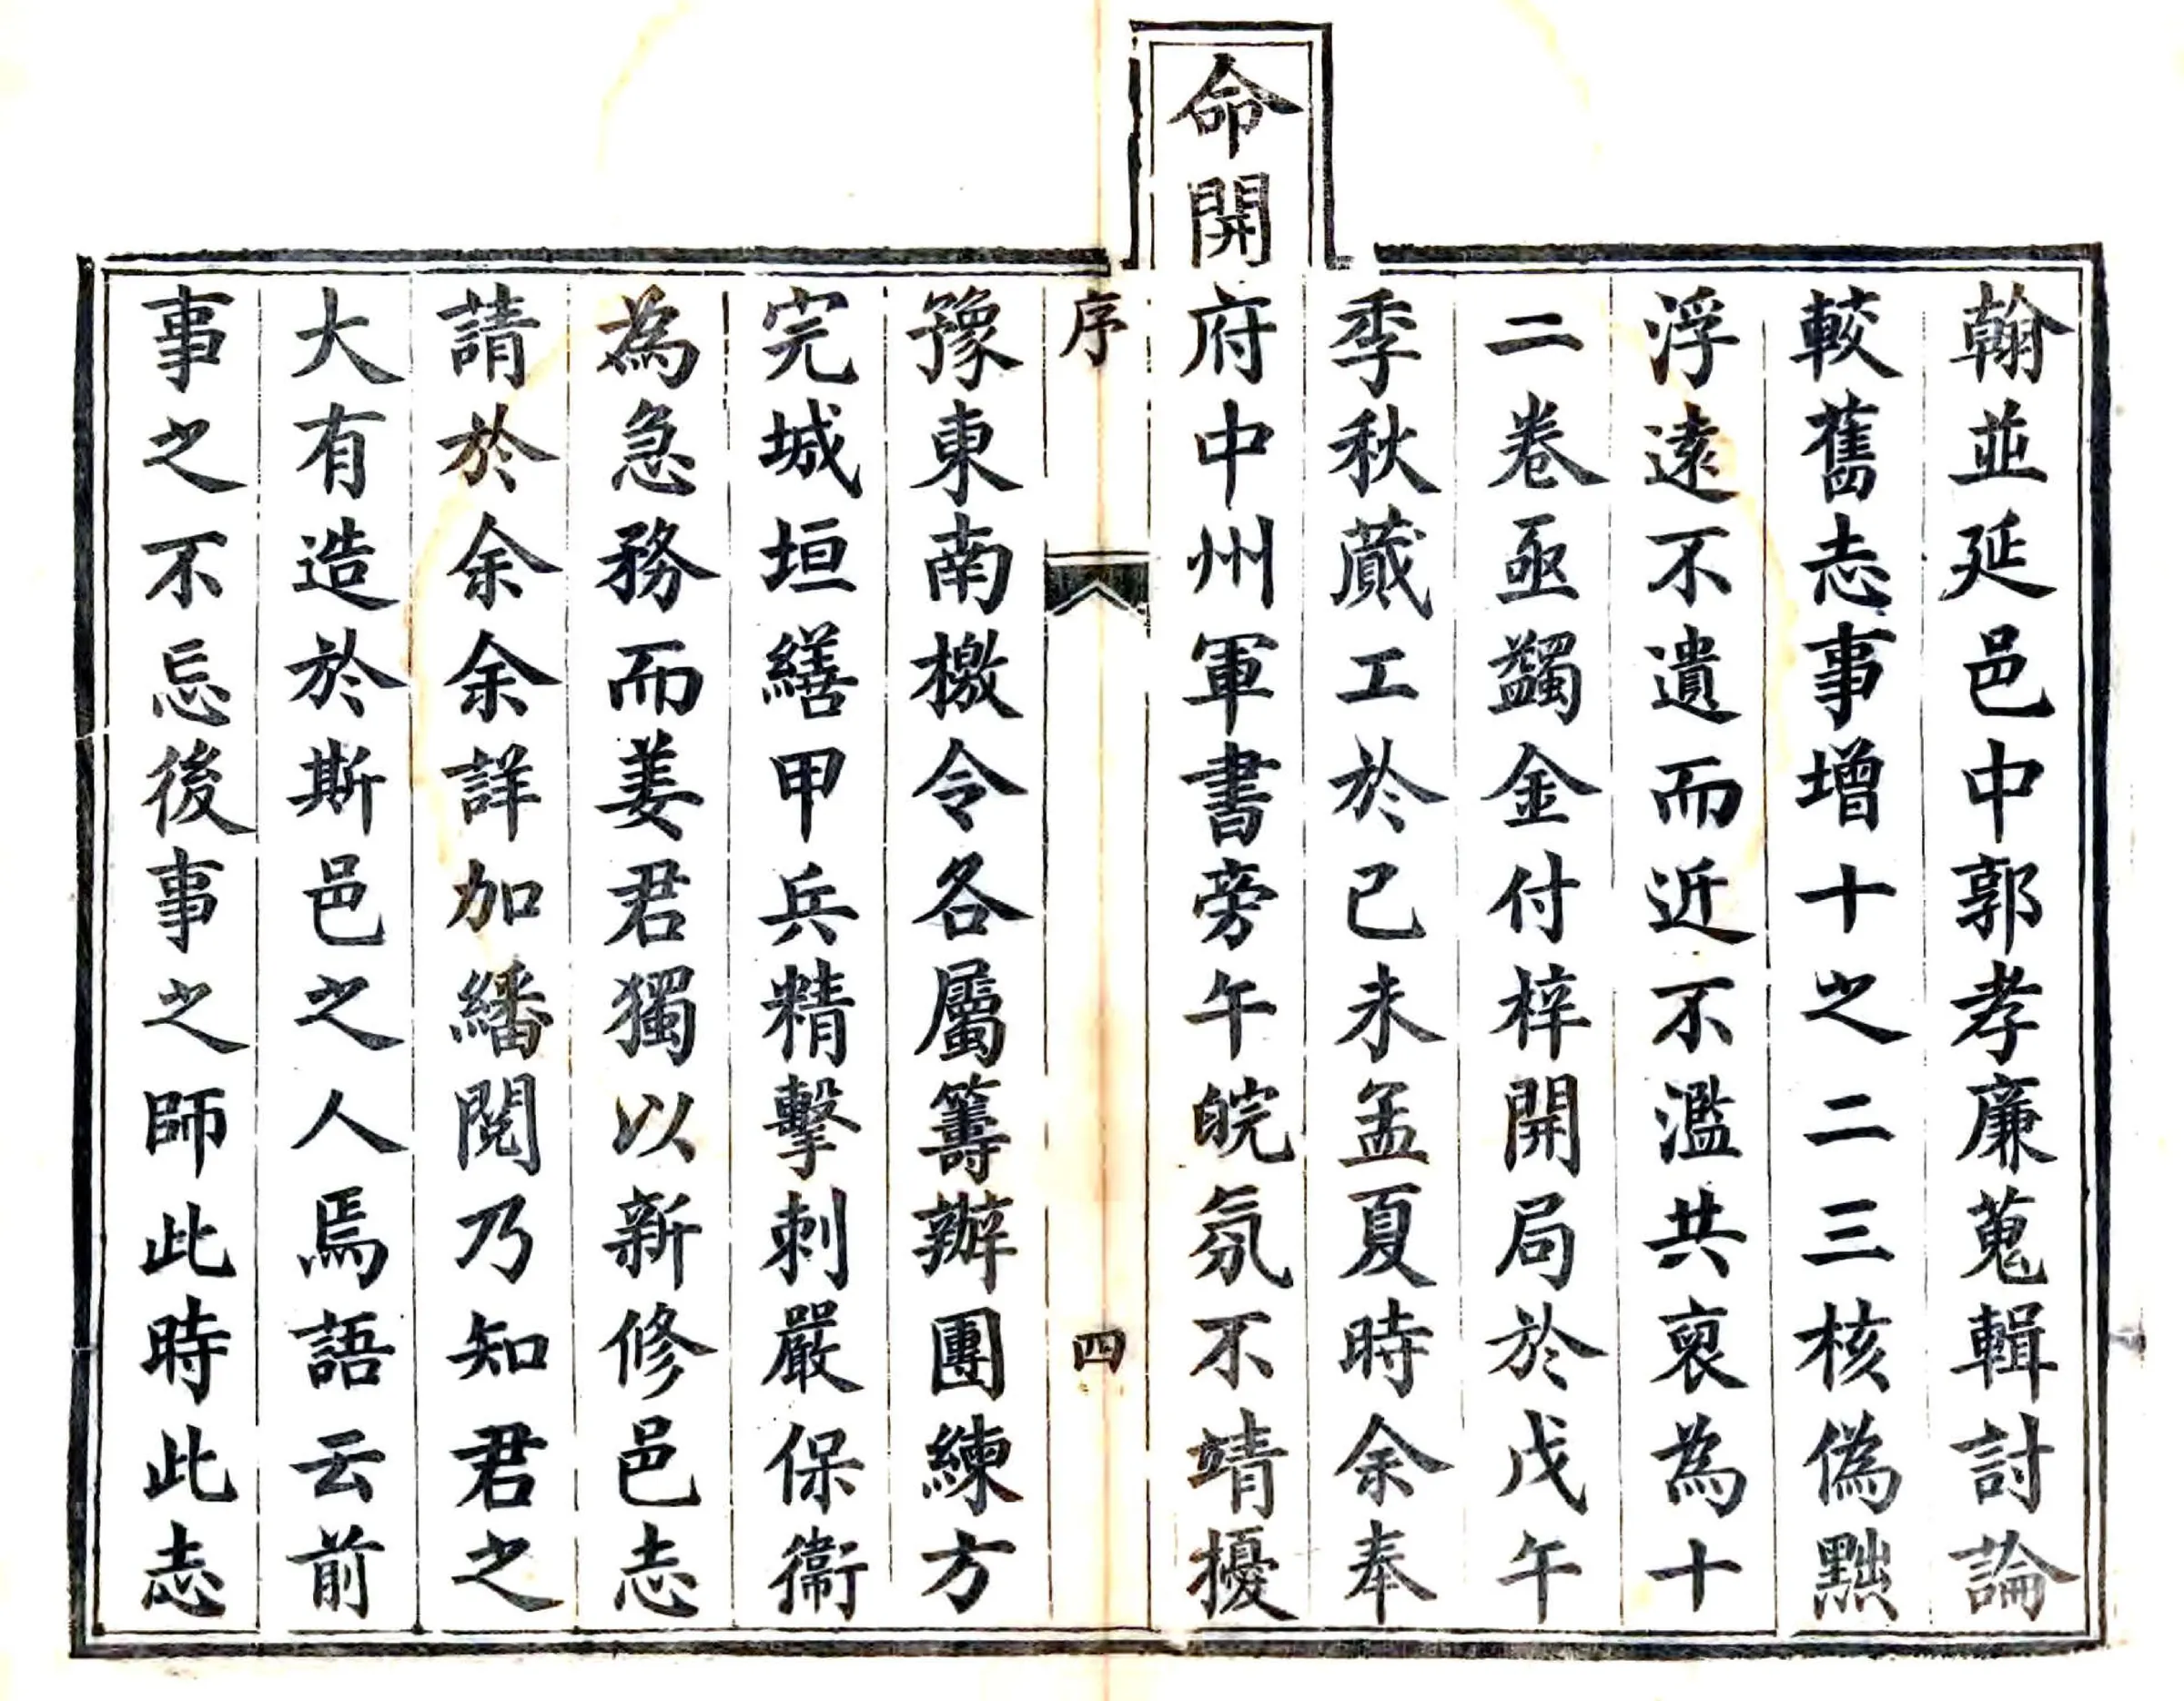 翰並延邑中郭孝廉蒐輯討論
較舊志事增十之二三核偽黜
浮遠不遺而近不濫共裒為十
二卷亟蠲金付梓開局於戊午
季秋蕆工於己未孟夏時余奉
命開府中州軍書旁午皖氛不靖擾
序
四
豫東南檄令各屬籌辦團練方
完城垣繕甲兵精擊刺嚴保衞
為急務而姜君獨以新修邑志
請於余余詳加繙閱乃知君之
大有造於斯邑之人焉語云前
事之不忘後事之師此時此志